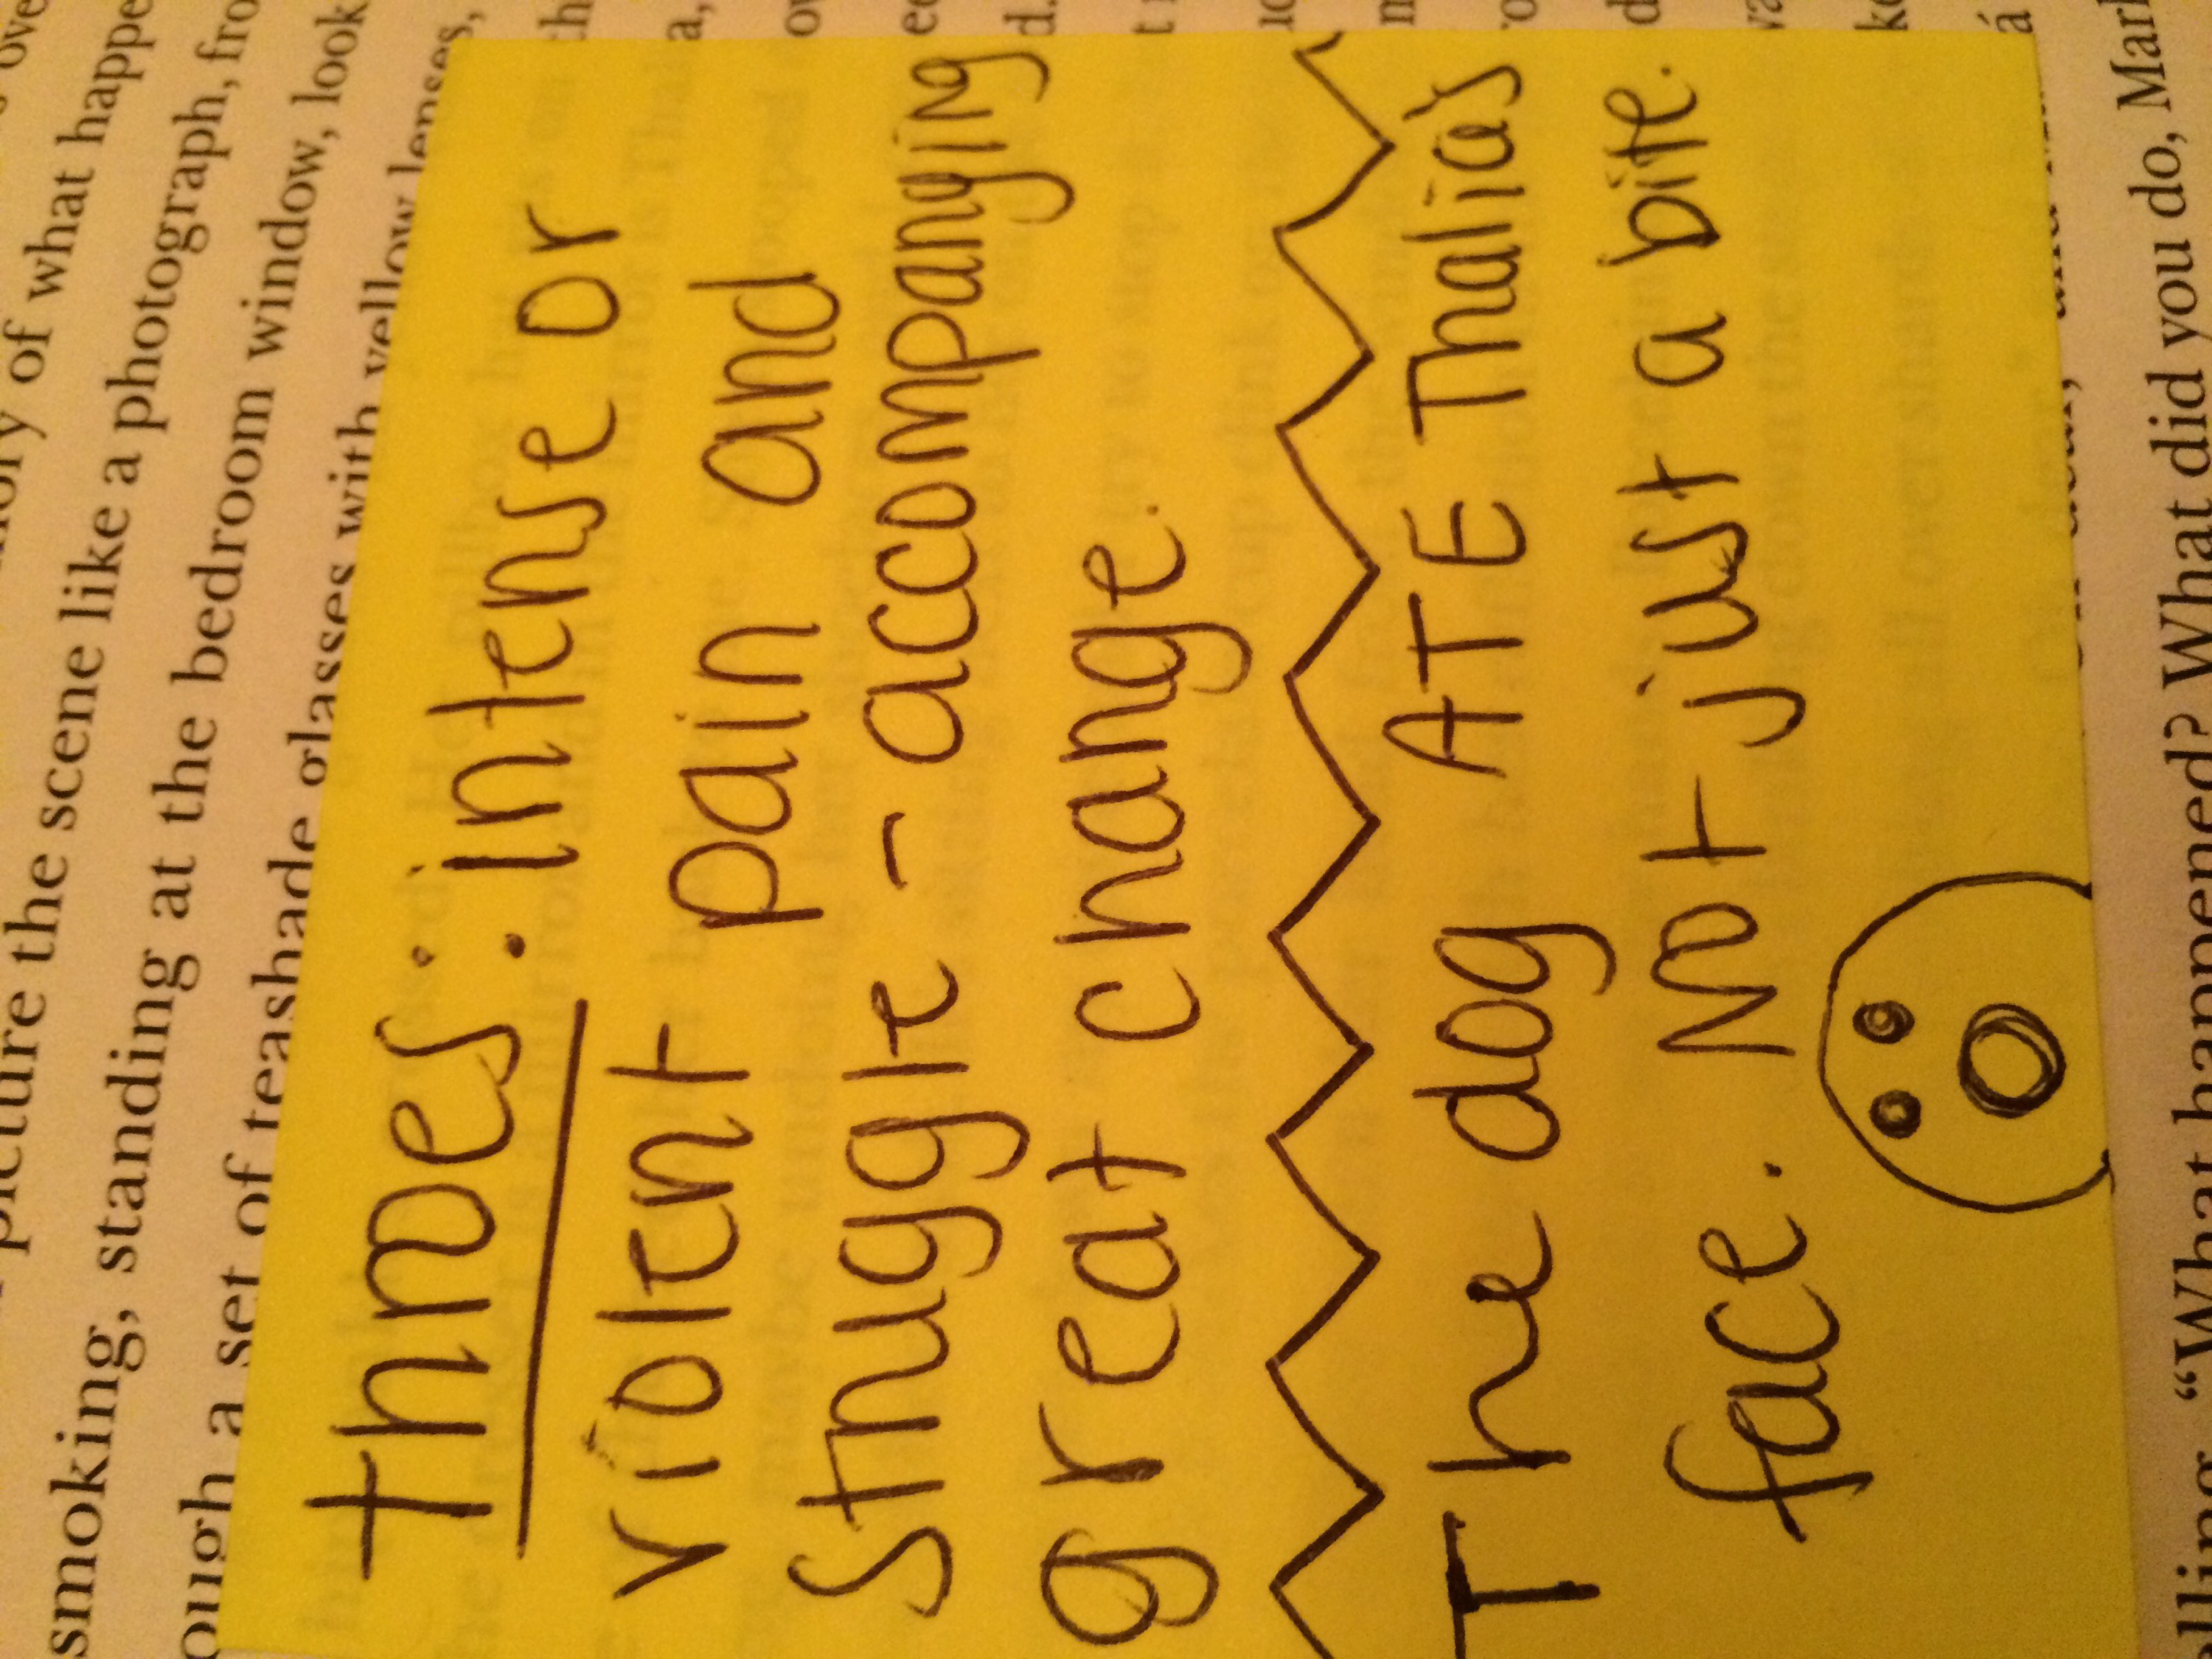 of what happe
picture the scene like a photograph, fro
smoking, standing at the bedroom window, look
ough a set of teashade glasses with yellow lenses,
throes: intense or
violent pain and
struggle - accompanying
great change.
The dog ATE Thalia's
face. Not just a bite.
elling, “What happened? What did you do, Mark